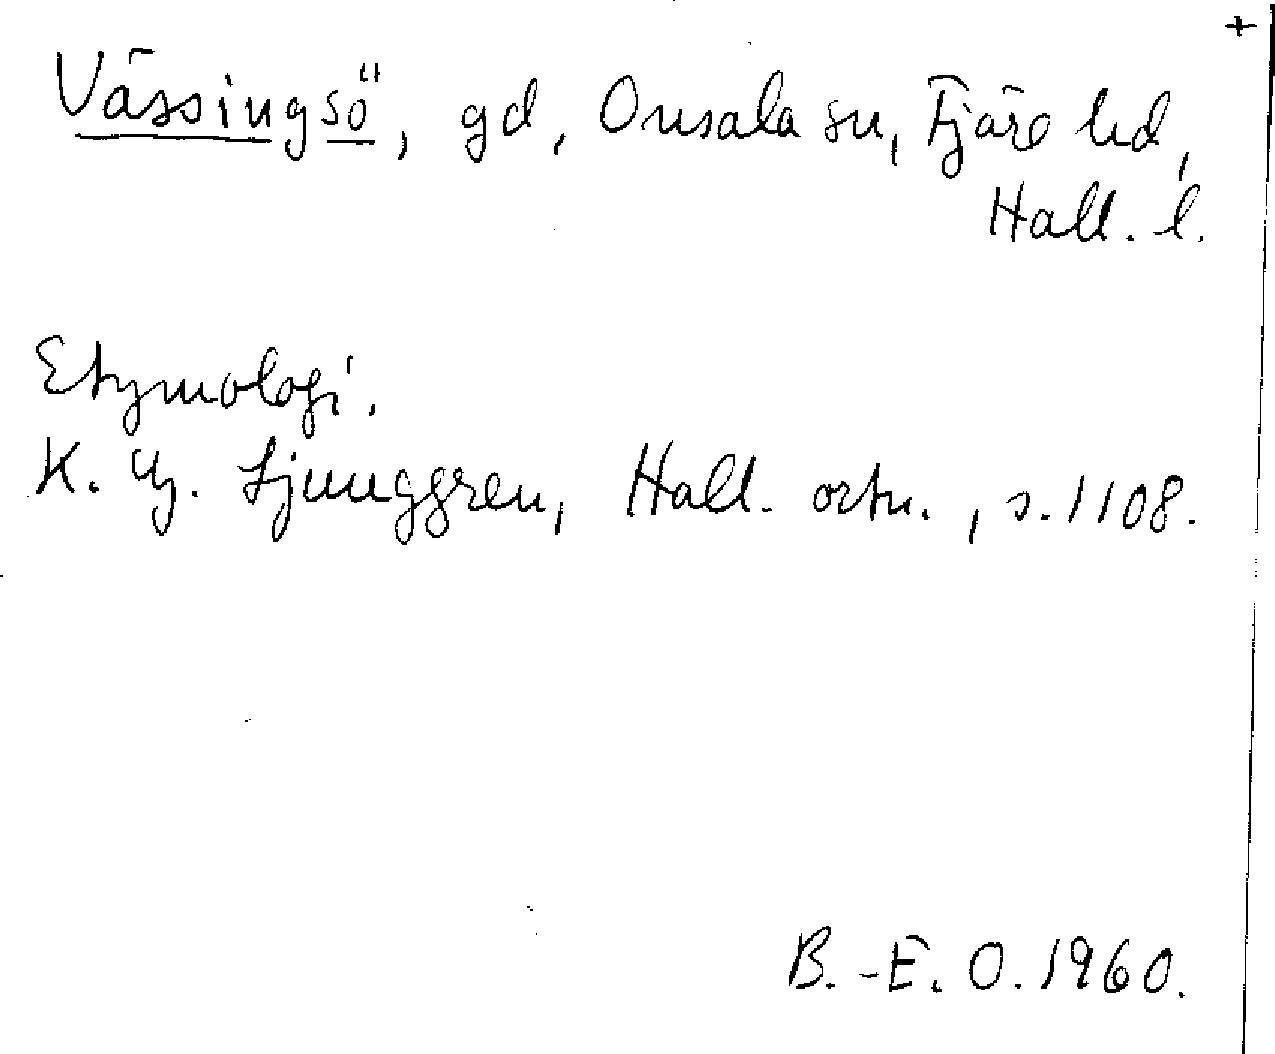 +
Vässingsö, gd, Onsala sn, Fjäre hd,
Hall. l.
Etymologi.
K. G. Ljunggren, Hall. ortn., s. 1108.
B.-E. O. 1960.